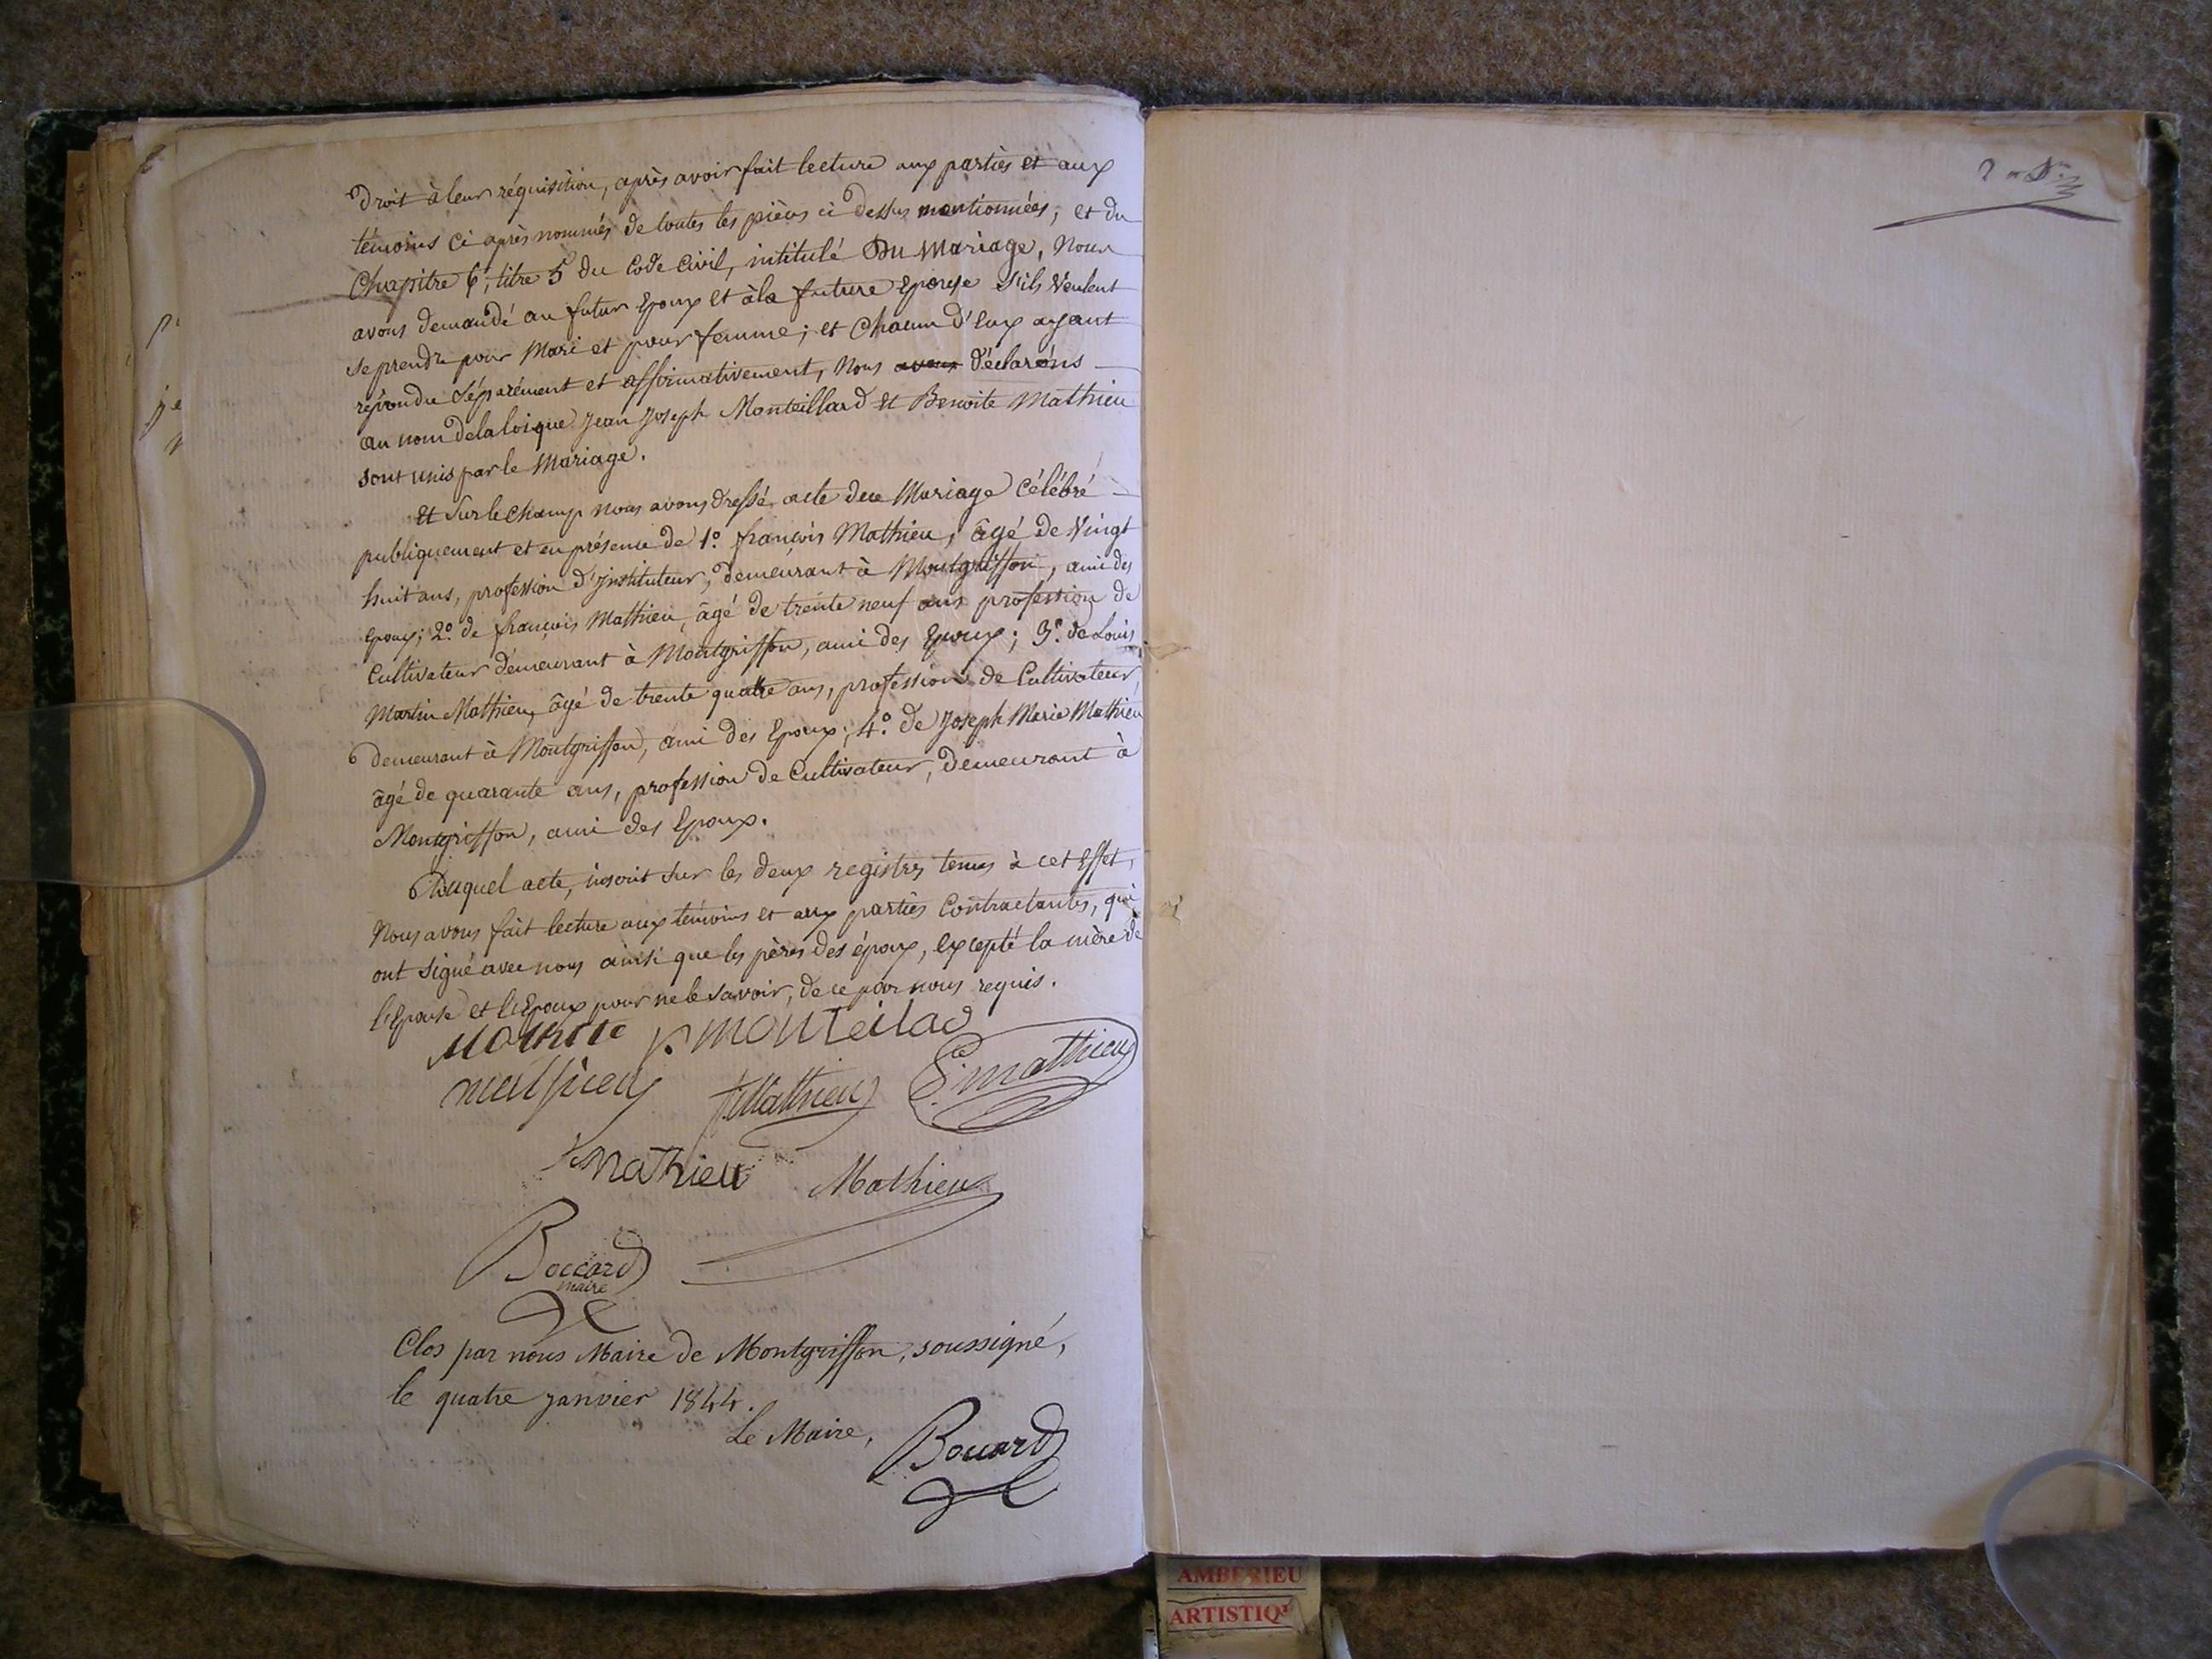 droit à leur réquisition, après avoir fait lecture aux parties et aux
témoins ci après nommés de toutes les pièces ci dessus mentionnées, et du
Chapitre 6, titre 5 du Code Civil, intitulé Du Mariage, Nous
avons demandé au futur Epoux et à la future Epouse s'ils Veulent
se prendre pour Mari et pour femme; et Chacun d'eux ayant
répondu séparément et affirmativement, Nous avons déclarons
au nom de la loi que Jean Joseph Monteillard et Benoite Mathieu
sont unis par le Mariage.
Et Sur le Champ nous avons dressé acte de ce Mariage Célébré
publiquement et en présence de 1.º françois Mathieu, âgé de Vingt
huit ans, profession d'Instituteur, demeurant à Montgriffon, ami des
Epoux; 2.º de françois Mathieu, âgé de trente neuf ans profession de
Cultivateur demeurant à Montgriffon, ami des Epoux; 3.º de Louis
Martin Mathieu, âgé de trente quatre ans, profession de Cultivateur,
demeurant à Montgriffon, ami des Epoux; 4.º de Joseph Marie Mathieu
âgé de quarante ans, profession de Cultivateur, demeurant à
Montgriffon, ami des Epoux.
Duquel acte, inscrit sur les deux registres tenus à cet Effet,
Nous avons fait lecture aux témoins et aux parties Contractantes, qui
ont signé avec nous ainsi que les pères des époux, Excepté la mère de
l'Epouse et l'Epoux pour ne le savoir, de ce par nous requis.
monteilad
mathieu f. Mathieu mathieu
mathieu Mathieu
Boccard
maire
Clos par nous Maire de Montgriffon, soussigné,
le quatre janvier 1844.
Le Maire, Boccard
AMBERIEU
ARTISTIQU